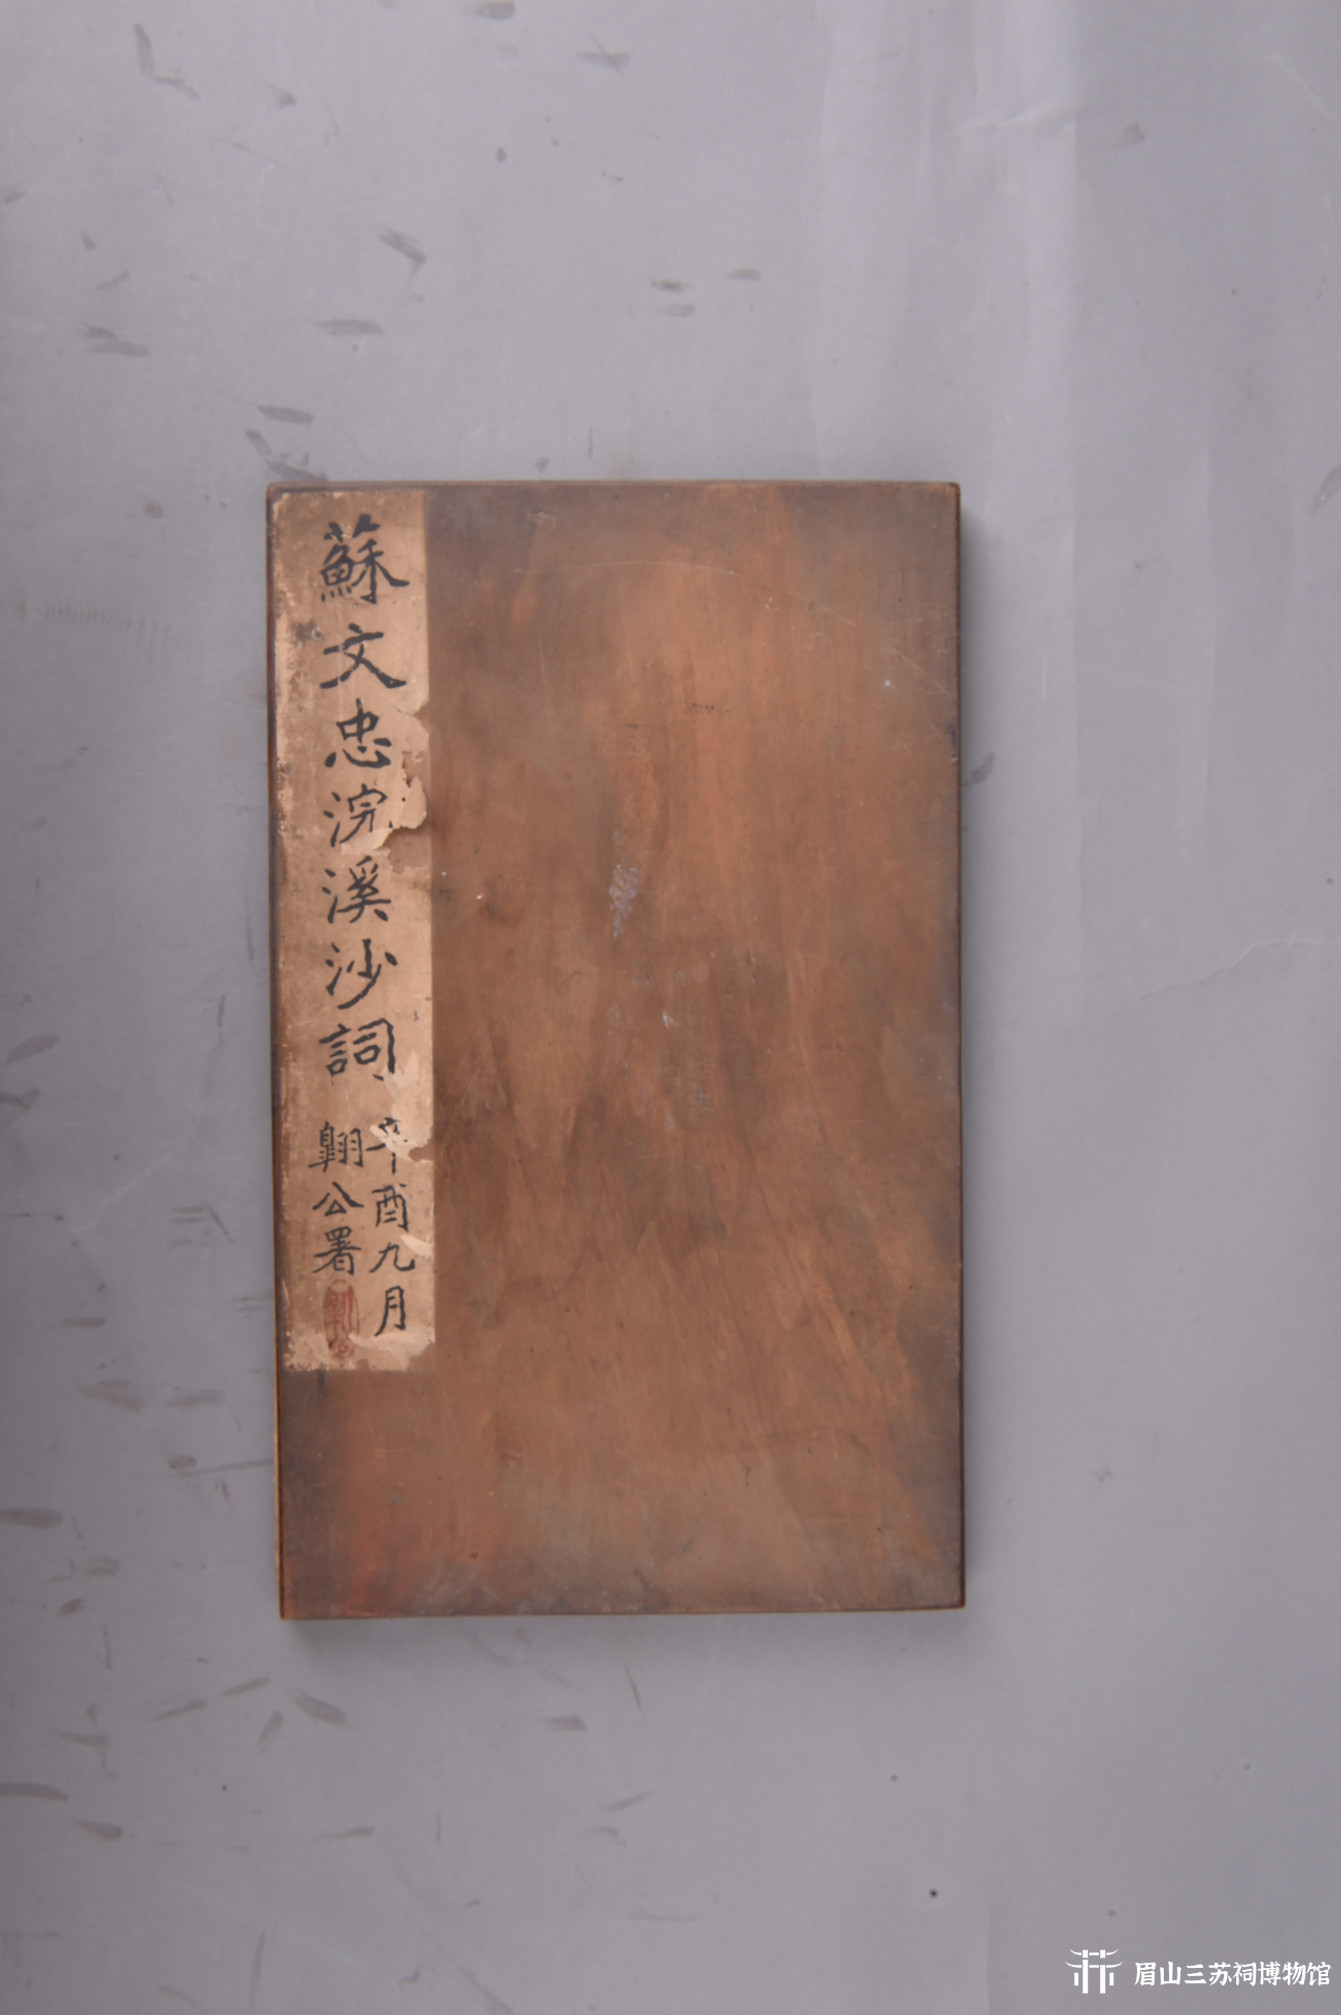 蘇文忠浣溪沙詞
辛酉九月
翱公署
眉山三苏祠博物馆